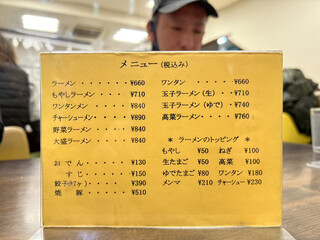 メニュー(税込み)
ラーメン・・・・・・¥660
もやしラーメン・・・¥710
ワンタンメン・・・・¥840
チャーシューメン・・¥890
野菜ラーメン・・・・¥840
大盛ラーメン・・・・¥840
おでん・・・・・・¥130
すじ・・・・・・¥150
餃子(7ヶ)・・・・¥390
焼豚・・・・・・¥510
ワンタン・・・・・・¥640
玉子ラーメン(生)・・¥710
玉子ラーメン(ゆで)・¥740
高菜ラーメン・・・・¥760
* ラーメンのトッピング *
もやし ¥50 ねぎ ¥100
生たまご ¥50 高菜 ¥100
ゆでたまご ¥80 ワンタン ¥180
メンマ ¥210 チャーシュー ¥230